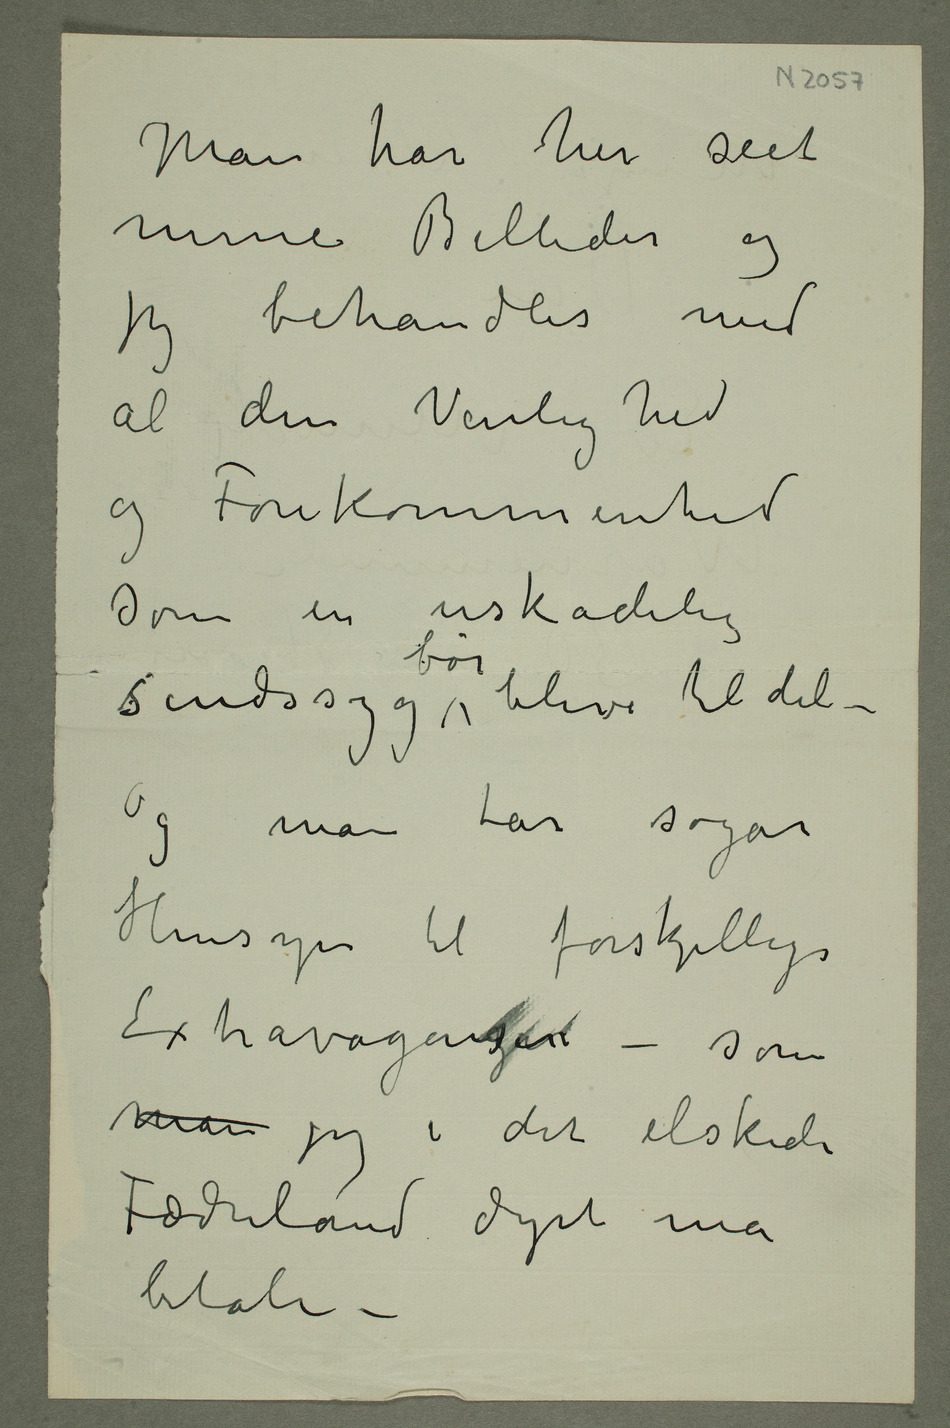 N 2057
Man har her seet
mine Billeder og
jeg behandles med
al den Venlighed
og Forekommenhed
som en uskadelig
bør
sindssyg bleve til del –
Og man tar sogar
Hensyn til forskjellige
Extravaganser – som
man jeg i det elskede
Fædreland dyrt må
betale –